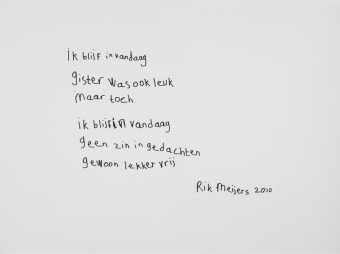 ik blijf in vandaag
gister was ook leuk
maar toch
ik blijf in vandaag
geen zin in gedachten
gewoon lekker vrij
Rik Meijers 2010